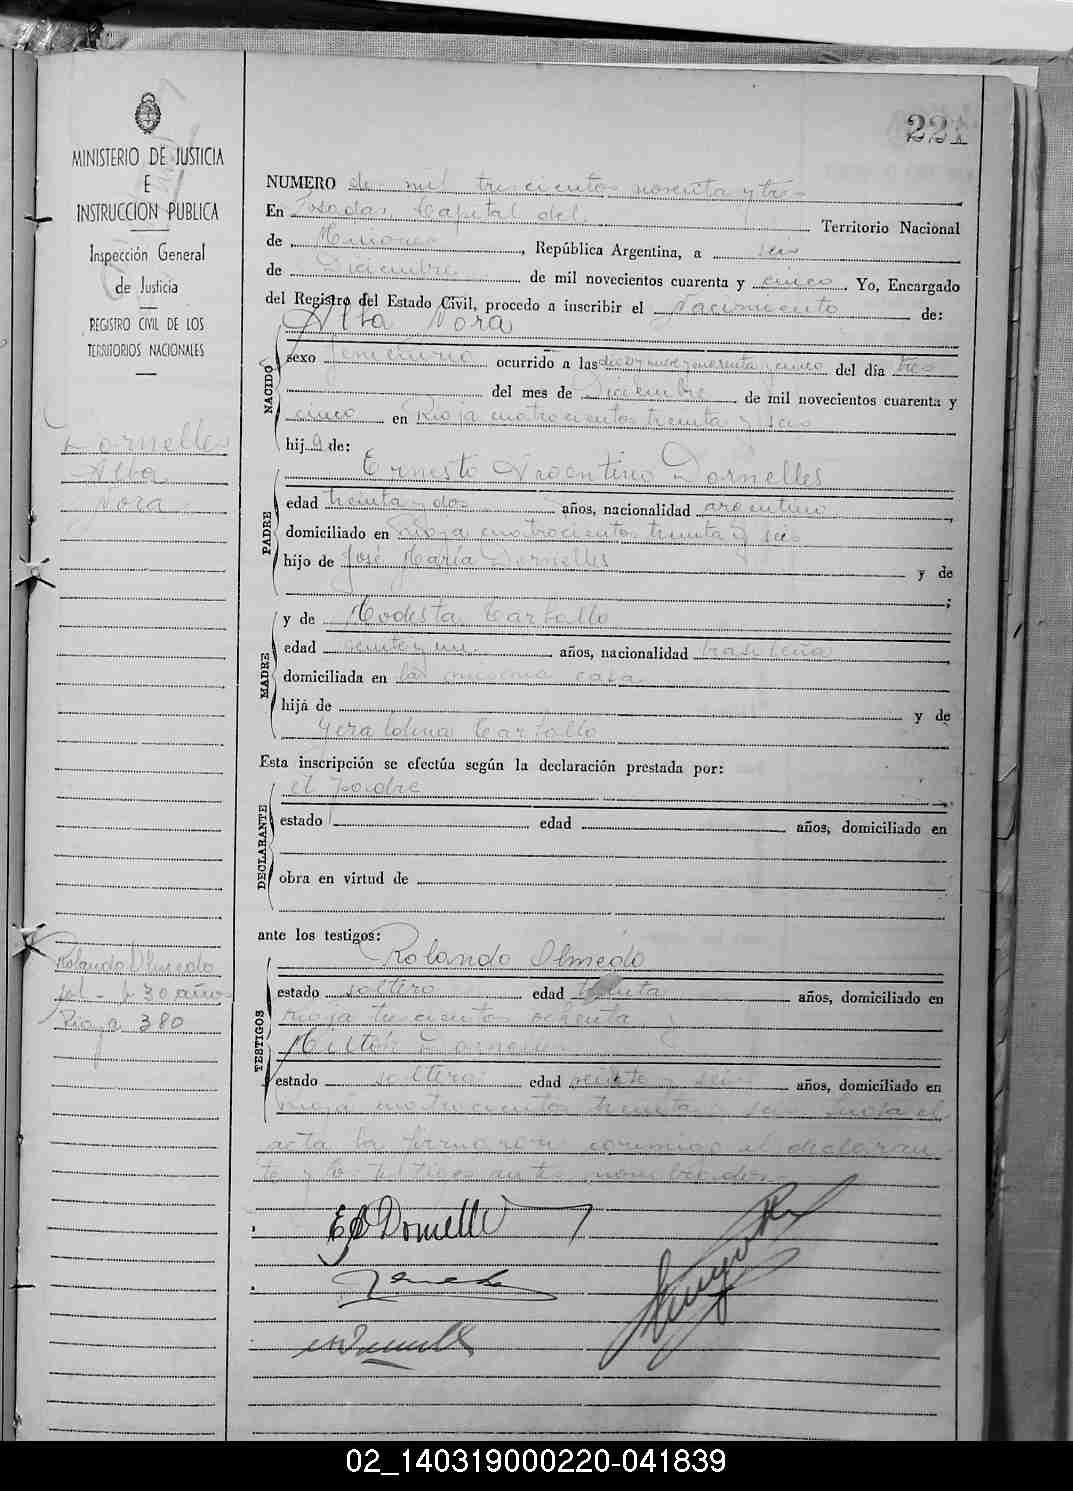 221
MINISTERIO DE JUSTICIA
E
INSTRUCCION PUBLICA
Inspección General
de Justicia
REGISTRO CIVIL DE LOS
TERRITORIOS NACIONALES
Dornelles
Alba
Nora
Rolando Olmedo
sol - 30 años
Rioja 380
NUMERO de mil trescientos noventa y tres
En Posadas Capital del Territorio Nacional
de Misiones, República Argentina, a seis
de Diciembre de mil novecientos cuarenta y cinco Yo, Encargado
del Registro del Estado Civil, procedo a inscribir el Nacimiento de:
NACIDO
Alba Nora
sexo femenino ocurrido a las diez y nueve y cuarenta y cinco del día tres
del mes de Diciembre de mil novecientos cuarenta y
cinco en Rioja cuatrocientos treinta y seis
hija de:
PADRE
Ernesto Argentino Dornelles
edad treinta y dos años, nacionalidad argentino,
domiciliado en Rioja cuatrocientos treinta y seis
hijo de José María Dornelles y de
;
MADRE
y de Modesta Carballo
edad veinte y un años, nacionalidad brasileña
domiciliada en la misma casa
hija de y de
Geraldina Carballo
Esta inscripción se efectúa según la declaración prestada por:
DECLARANTE
el padre
estado edad años, domiciliado en
obra en virtud de
ante los testigos:
TESTIGOS
Rolando Olmedo
estado soltero edad treinta años, domiciliado en
rioja trescientos ochenta y
Dornelles
estado soltero edad veinte y seis años, domiciliado en
rioja cuatrocientos treinta y seis leida el
acta la firmaron conmigo el declaran
te y lo testigos antes nombrados
E A Dornelles
02_140319000220-041839